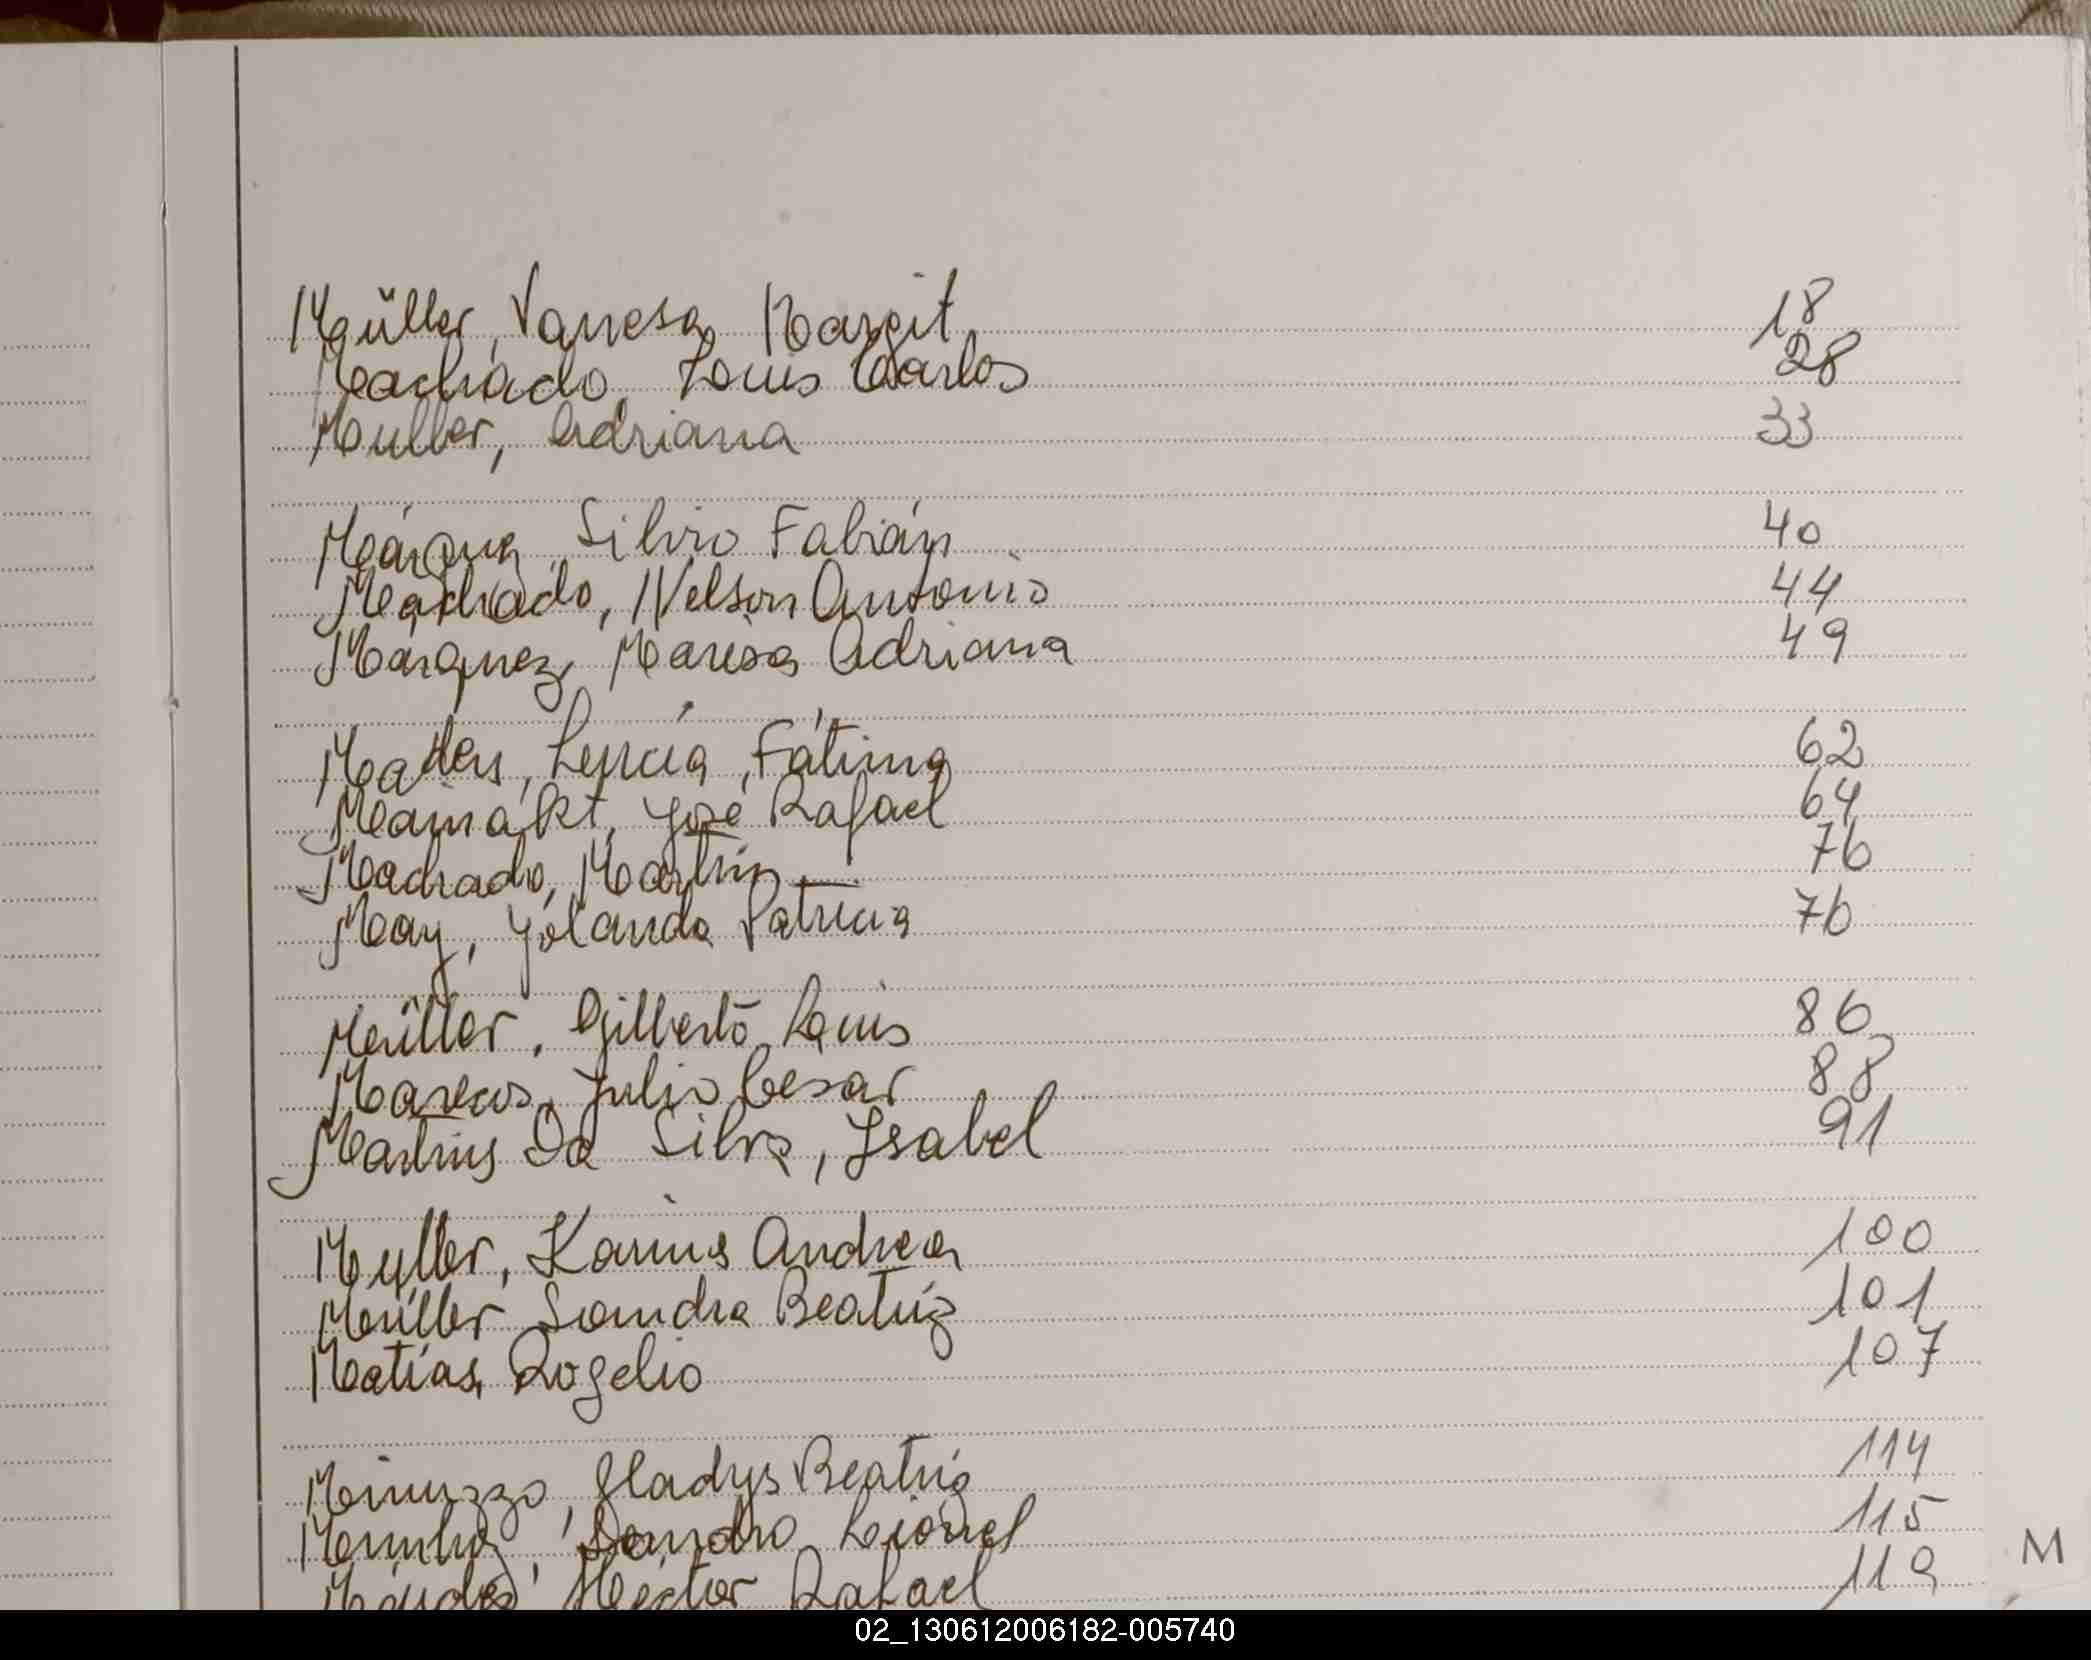 Müller, Vanesa Margit 18
Machado, Louis Carlos 28
Muller, Adriana 33
Márquez, Silvio Fabián 40
Machado, Nelson Antonio 44
Marquez, Marisa Adriana 49
Lucía Fátima 62
José Rafael 64
Machado, Martín 76
May, Yolanda Patricia 76
Müller, Gilberto Luis 86
Marcos, Julio Cesar 88
Martins Da Silva, Isabel 91
Myller, Karina Andrea 100
Müller Sandra Beatriz 101
Matías, Rogelio 107
Minuzzo, Gladys Beatriz 114
Sandro Lionel 115
Héctor Rafael 119
M
02_130612006182-005740